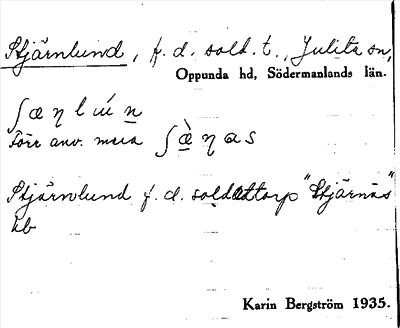 Stjärnlund, f. d. sold. t., Julita sn,
Oppunda hd, Södermanlands län.
ʃæ η l ú n
Förr anv. mera ʃæ̀ η a s
Stjärnlund f. d. soldattorp "Stjärnäs"
kb
Karin Bergström 1935.